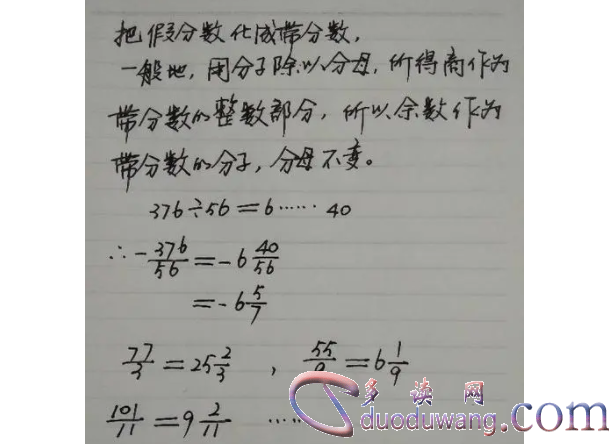 把假分数化成带分数，
一般地，用分子除以分母，所得商作为
带分数的整数部分，所以余数作为
带分数的分子，分母不变。
376÷56=6……40
∴-376/56=-6 40/56
=-6 5/7
77/3=25 2/3 , 55/9=6 1/9
101/11=9 2/11 ……
多读网
duoduwang.com